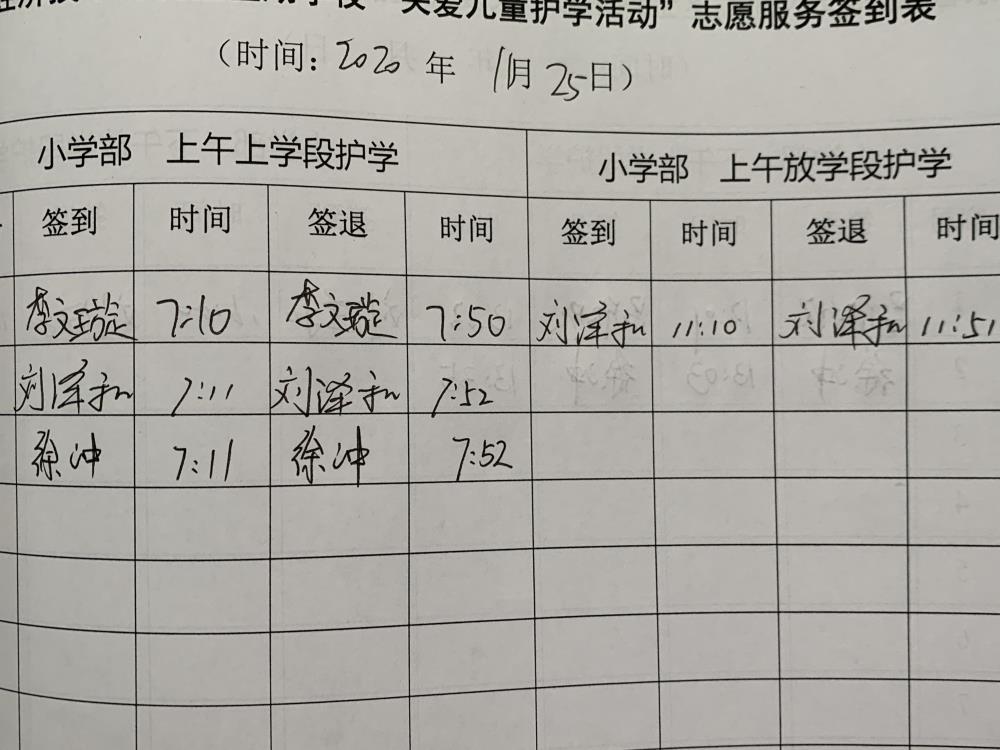 “关爱儿童护学活动”志愿服务签到表
（时间：2020 年 11月 25日）
小学部 上午上学段护学 小学部 上午放学段护学
签到 时间 签退 时间 签到 时间 签退 时间
李文璇 7:10 李文璇 7:50 刘泽和 11:10 刘泽和 11:51
刘泽和 7:11 刘泽和 7:52
徐冲 7:11 徐冲 7:52